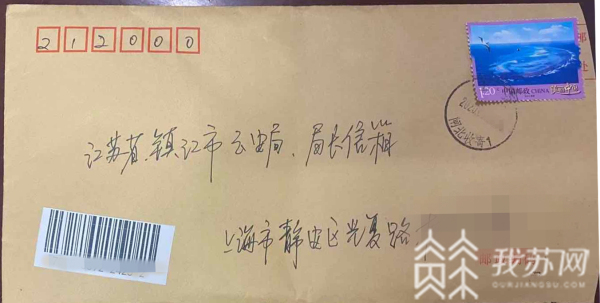 212000
1.20 中国邮政 CHINA
江苏省.镇江市公安局、局长信箱
上海市静安区光复路
我苏网
OURJIANGSU.COM